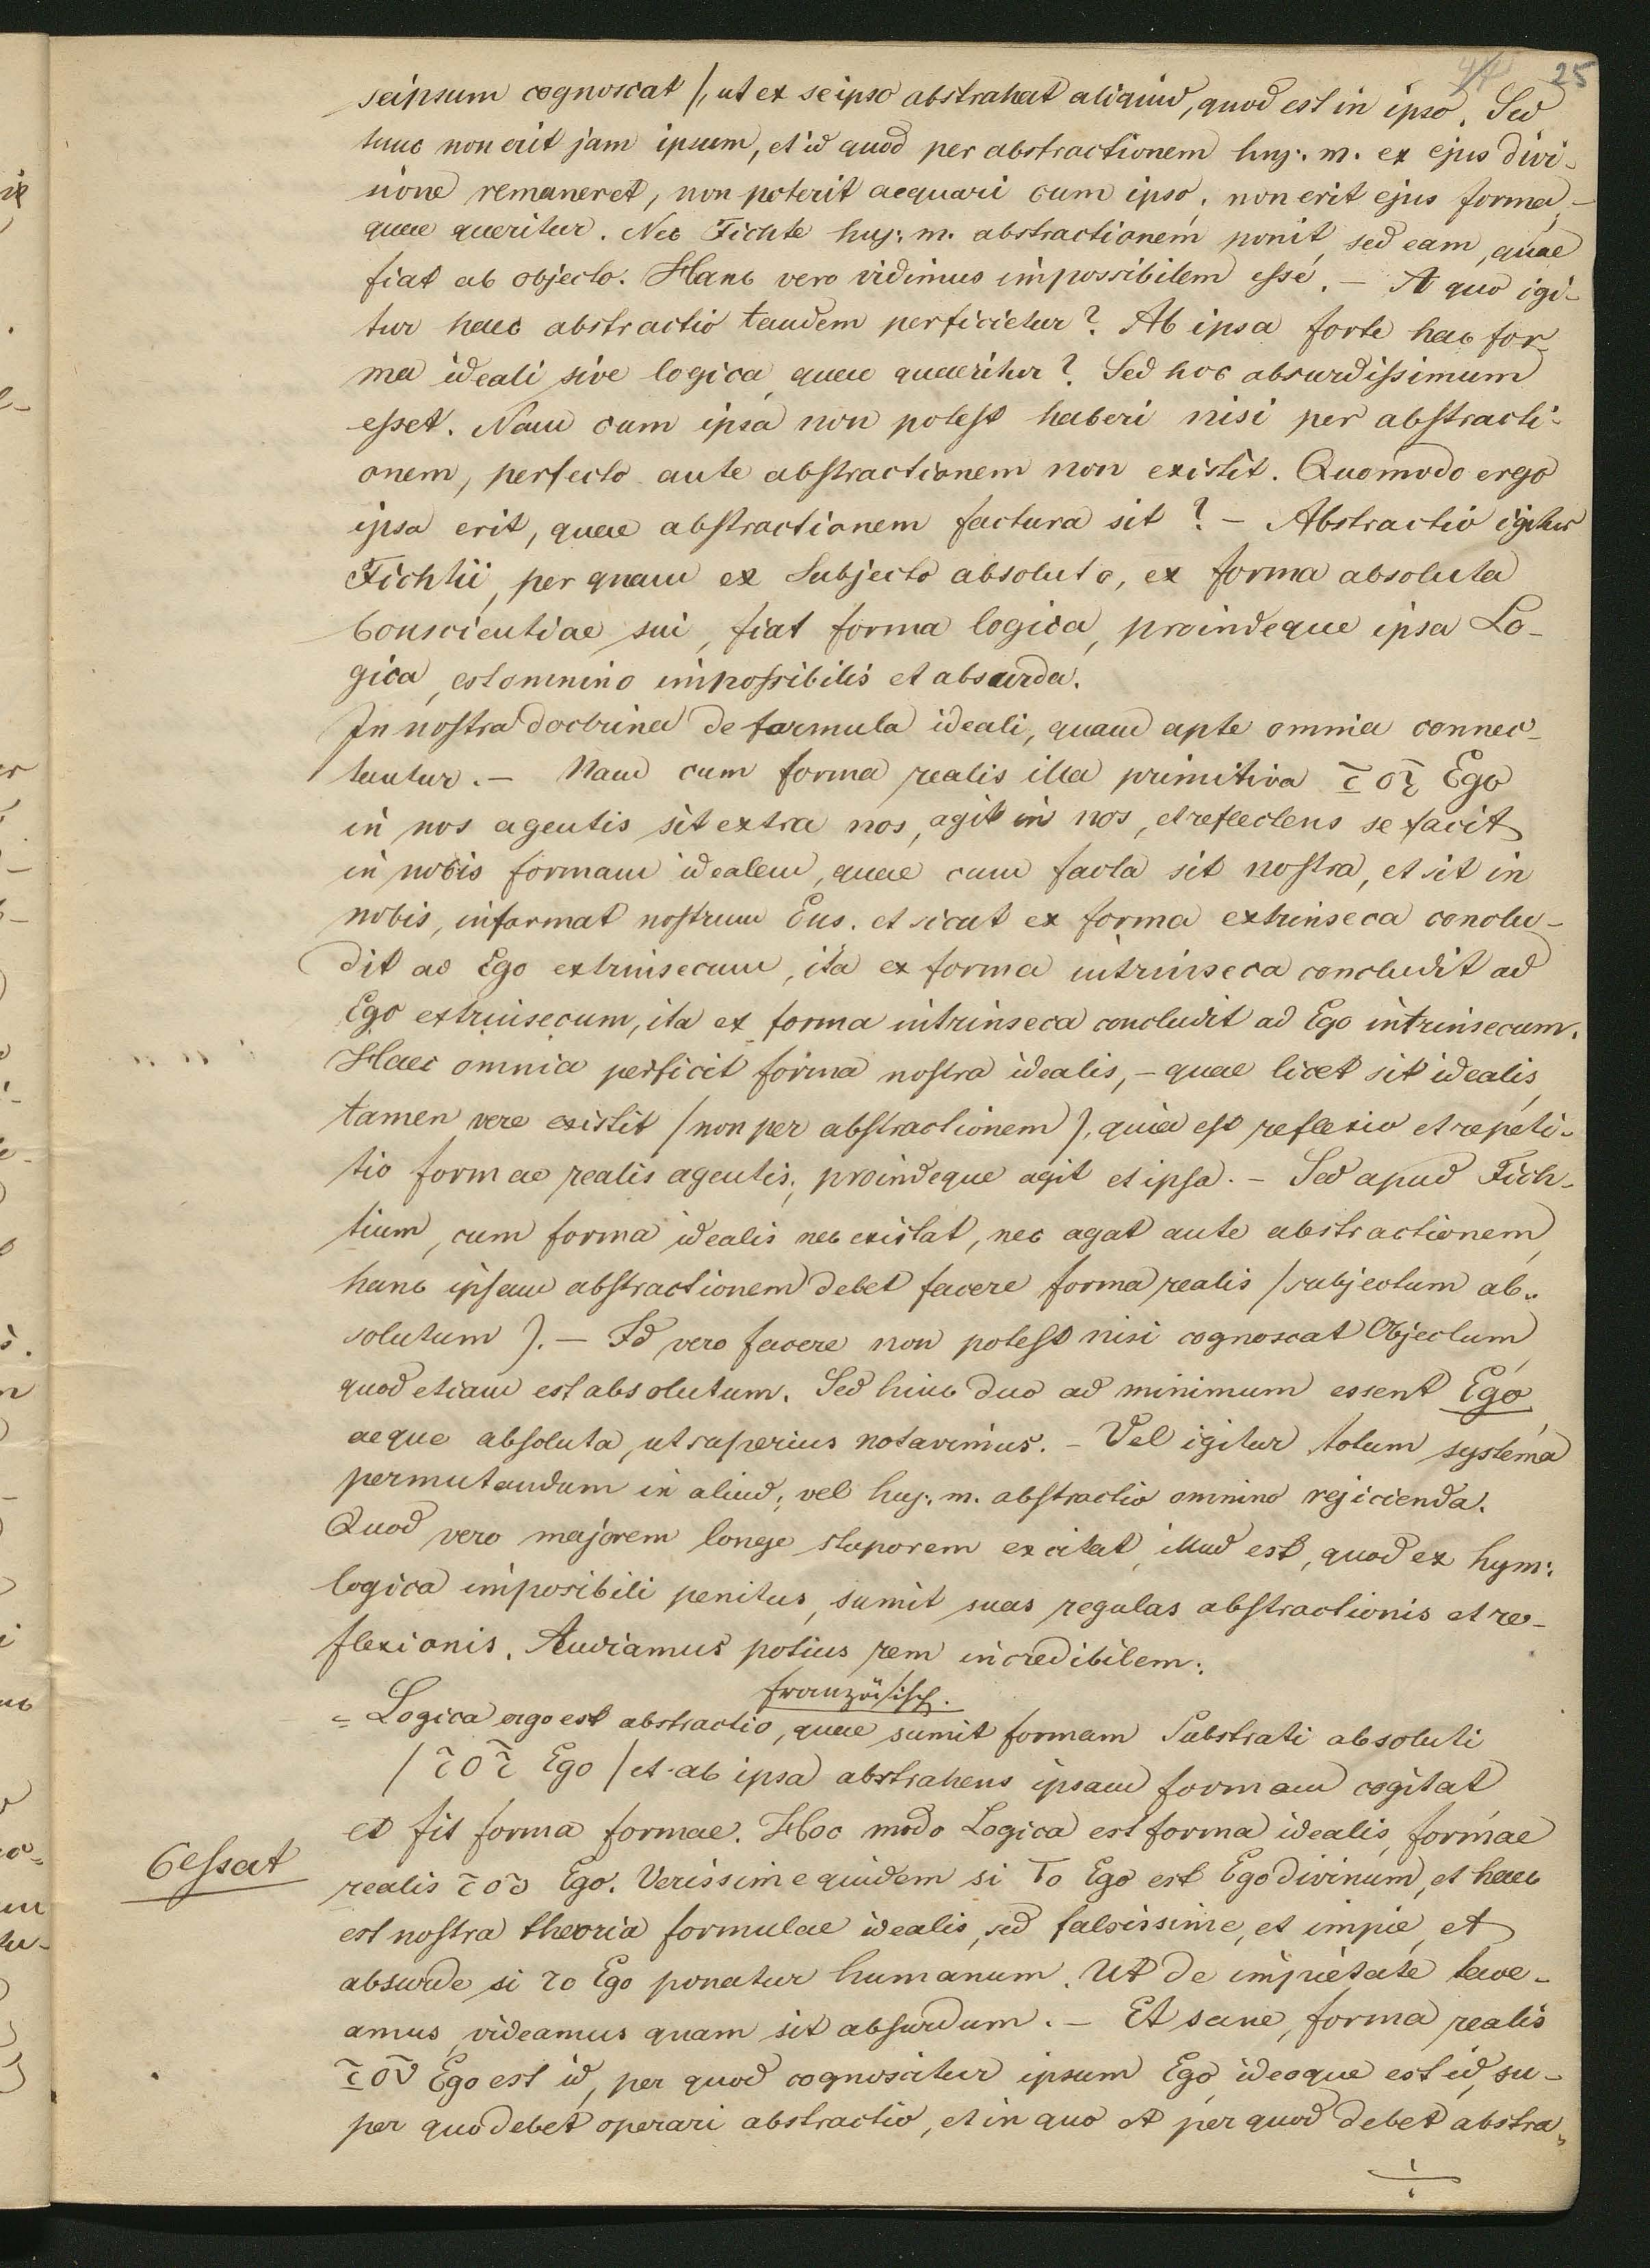 47 25
seipsum cognoscat /, ut ex seipso abstrahat aliquid, quod est in ipso. Sed
tunc non erit jam ipsum, et id quod per abstractionem huj. m. ex ejus divi-
sione remaneret, non poterit aequari cum ipso, non erit ejus forma,
quae queritur. Nec Fichte huj. m. abstractionem ponit, sed eam, quae
fiat ab objecto. Hanc vero vidimus impossibilem esse. – A quo igi-
tur haec abstractio tandem perficietur? Ab ipsa forte hac for-
ma ideali sive logica, quae quaeritur? Sed hoc absurdissimum
esset. Nam cum ipsa non potest haberi nisi per abstracti-
onem, perfecto ante abstractionem non existit. Quomodo ergo
ipsa erit, quae abstractionem factura sit? – Abstractio igitur
Fichtii, per quam ex Subjecto absoluto, ex forma absoluta
Conscientiae sui, fiat forma logica, proindeque ipsa Lo-
gica, est omnino impossibilis et absurda.
In nostra doctrina de formula ideali, quam apte omnia connec-
tuntur. – Nam cum forma realis illa primitiva τοῦ Ego
in nos agentis sit extra nos, agit in nos, et reflectens se facit
in nobis formam idealem, quae cum facta sit nostra, et sit in
nobis, informat nostrum Ens. et sicut ex forma extrinseca conclu-
dit ad Ego extrinsecum, ita ex forma intrinseca concludit ad
Ego extrinsecum, ita ex forma intrinseca concludit ad Ego intrinsecum.
Haec omnia perficit forma nostra idealis, – quae licet sit idealis,
tamen vere existit / non per abstractionem), quia est reflexio et repeti-
tio formae realis agentis; proindeque agit et ipsa. – Sed apud Fich-
tium, cum forma idealis nec existat, nec agat ante abstractionem,
hanc ipsam abstractionem debet facere forma realis / subjectum ab-
solutum). – Id vero facere non potest nisi cognoscat Objectum,
quod etiam est absolutum. Sed hinc duo ad minimum essent Ego
aeque absoluta, ut superius notavimus. – Vel igitur totum systema
permutandum in aliud; vel huj. m. abstractio omnino rejicienda.
Quod vero majorem longe stuporem excitat, illud est, quod ex hujm:
logica imposibili penitus, sumit suas regulas abstractionis et re-
flexionis. Audiamus potius rem incredibilem:
französisch.
= Logica ergo est abstractio, quae sumit formam Substrati absoluti
/ τοῦ Ego / et ab ipsa abstrahens ipsam formam cogitat
et fit forma formae. Hoc modo Logica est forma idealis, formae
Cessat
realis τοῦ Ego. Verissime quidem si To Ego est Ego divinum, et haec
est nostra theoria formulae idealis, sed falsissime, et impie, et
absurde si το Ego ponatur humanum. Ut de impietate tace-
amus, videamus quam sit absurdum. – Et sane, forma realis
τοῦ Ego est id, per quod cognoscitur ipsum Ego, ideoque est id, su-
per quo debet operari abstractio, et in quo et per quod debet abstra-